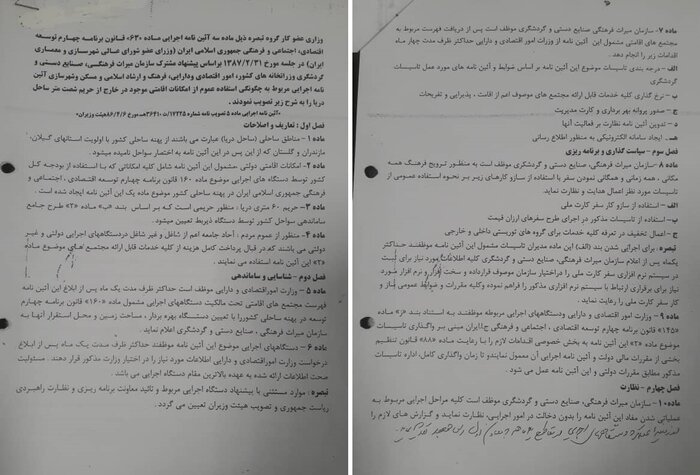 وزاری عضو کار گروه تبصره ذیل ماده سه آئین نامه اجرایی ماده «۶۳» قانون برنامه چهارم توسعه
اقتصادی، اجتماعی و فرهنگی جمهوری اسلامی ایران (وزرای عضو شورای عالی شهرسازی و معماری
ایران) در جلسه مورخ ۱۳۸۷/۲/۳۱ براساس پیشنهاد مشترک سازمان میراث فرهنگی، صنایع دستی و
گردشگری وزراتخانه های کشور، امور اقتصادی ودارایی، فرهنگ و ارشاد اسلامی و مسکن وشهرسازی آئین
نامه اجرایی مربوط به چگونگی استفاده عموم از امکانات اقامتی موجود در خارج از حریم شصت متر ساحل
دریا را به شرح زیر تصویب نمودند.
«آئین نامه اجرایی ماده ۵ تصویب نامه شماره
فصل اول : تعاریف و اصلاحات
ماده ۱- مناطق ساحلی (ساحل دریا) عبارت می باشند از پهنه ساحلی کشور با اولویت استانهای گیلان،
مازندران و گلستان که از این پس در این آئین نامه به اختصار سواحل نامیده میشود.
ماده ۲- امکانات اقامتی دولتی مشمول این آئین نامه شامل کلیه اماکناتی که با استفاده از بودجه کل
کشور توسط دستگاه های اجرایی موضوع ماده ۱۶۰ قانون برنامه چهارم توسعه اقتصادی ، اجتماعی و
فرهنگی جمهوری اسلامی ایران در پهنه ساحلی کشور موضوع ماده یک این آئین نامه ایجاد شده است .
ماده ۳- حریم ۶۰ متری دریا : منظور حریمی است که بر اساس بند «ب» ماده «۲» طرح جامع
ساماندهی سواحل کشور توسط دستگاه ذیربط تعیین میشود.
ماده ۴- منظور از عموم مردم : آحاد جامعه اعم از شاغل و غیر شاغل دردستگاههای اجرایی دولتی و غیر
دولتی می باشند که در قبال پرداخت کامل هزینه از کلیه خدمات قابل ارائه مجتمع های موضوع ماده
«۲» این آئین نامه استفاده می نمایند .
فصل دوم - شناسایی و ساماندهی
ماده ۵ - وزارت امور اقتصادی و دارایی موظف است حداکثر ظرف مدت یک ماه پس از ابلاغ این آئین نامه
فهرست مجتمع های اقامتی تحت مالکیت دستگاههای اجرایی مشمول ماده «۱۶۰» قانون برنامه چهارم
توسعه در پهنه ساحلی کشوررا با تعیین دستگاه بهره بردار ، مساحت زمین و محل استقرار آنها به
سازمان میراث فرهنگی، صنایع دستی و گردشگری اعلام نماید .
ماده ۶ - دستگاههای اجرایی موضوع این آئین نامه موظفند حداکثر ظرف مدت یک ماه پس از ابلاغ
درخواست وزارت اموراقتصادی و دارایی اطلاعات مورد نیاز را در اختیار وزارت مذکور قرار دهند . مسئولیت
صحت اطلاعات ارائه شده به عهده بالاترین مقام دستگاه اجرایی می باشد .
تبصره : موارد مستثنی با پیشنهاد دستگاه اجرایی مربوط و تائید معاونت برنامه ریزی و نظارت راهبردی
ریاست جمهوری و تصویب هیئت وزیران تعیین می گردد .
ماده ۷- سازمان میراث فرهنگی، صنایع دستی و گردشگری موظف است پس از دریافت فهرست مربوط به
مجتمع های اقامتی مشمول این آئین نامه از وزرات امور اقتصادی و دارایی حداکثر ظرف مدت چهار ماه
اقدامات زیر را انجام دهد .
الف - درجه بندی تاسیسات موضوع این آئین نامه بر اساس ضوابط و آئین نامه های مورد عمل تاسیسات
گردشگری
ب - نرخ گذاری کلیه خدمات قابل ارائه مجتمع های موصوف اعم از اقامت ، پذیرایی و تفریحات
ج - صدور پروانه بهر برداری و کارت مدیریت
د - تدوین آئین نامه نظارت بر فعالیت آنها
هـ - ایجاد سامانه الکترونیکی به منظور اطلاع رسانی
فصل سوم - سیاست گذاری و برنامه ریزی
ماده ۸ - سازمان میراث فرهنگی، صنایع دستی و گردشگری موظف است به منظور ترویج فرهنگ همه
مکانی ، همه زمانی و همگانی نمودن سفر با استفاده از سازو کارهای زیر بر نحوه استفاده عمومی از
تاسیسات مورد نظر اعمال هدایت و نظارت نماید.
الف - استفاده از سازو کار سفر کارت ملی
ب - استفاده از تاسیسات مذکور در اجرای طرح سفرهای ارزان قیمت
ج - اعمال تخفیف در تعرفه کلیه خدمات برای گروه های توریستی داخلی و خارجی
تبصره : برای اجرایی شدن بند (الف) این ماده مدیران تاسیسات مشمول این آئین نامه موظفند حداکثر
یکماه پس از اعلام سازمان میراث فرهنگی، صنایع دستی و گردشگری کلیه اطلاعات مورد نیاز برای ثبت
در سیستم نرم افزاری سفر کارت ملی را دراختیار سازمان موصوف قرارداده و سخت افزار و نرم افزار مورد
نیاز برای برقراری ارتباط با سیستم نرم افزاری مذکور را فراهم نموده وکلیه مقررات و ضوابط عمومی ثبار و
کار سفر کارت ملی را رعایت نماید .
ماده ۹ - وزارت امور اقتصادی و دارایی ودستگاههای اجرایی مربوطه موظفند به استناد بند «ز» ماده
«۱۴۵» قانون برنامه چهارم توسعه اقتصادی ، اجتماعی و فرهنگی ج.ا.ایران مبنی بر واگذاری تاسیسات
موضوع ماده «۲» این آئین نامه به بخش خصوصی اقدامات لازم را با رعایت ماده «۸۸» قانون تنظیم
بخشی از مقررات مالی دولت و آئین نامه اجرایی آن معمول نمایندو تا زمان واگذاری کامل، اداره تاسیسات
مذکور مطابق مقررات دولتی و این آئین نامه عمل می شود .
فصل چهارم - نظارت
ماده ۱۰ - سازمان میراث فرهنگی، صنایع دستی و گردشگری موظف است کلیه مراحل اجرایی مربوط به
عملیاتی شدن مفاد این آئین نامه را بدون دخالت در امور اجرایی، نظارت نماید و گزارش های لازم را